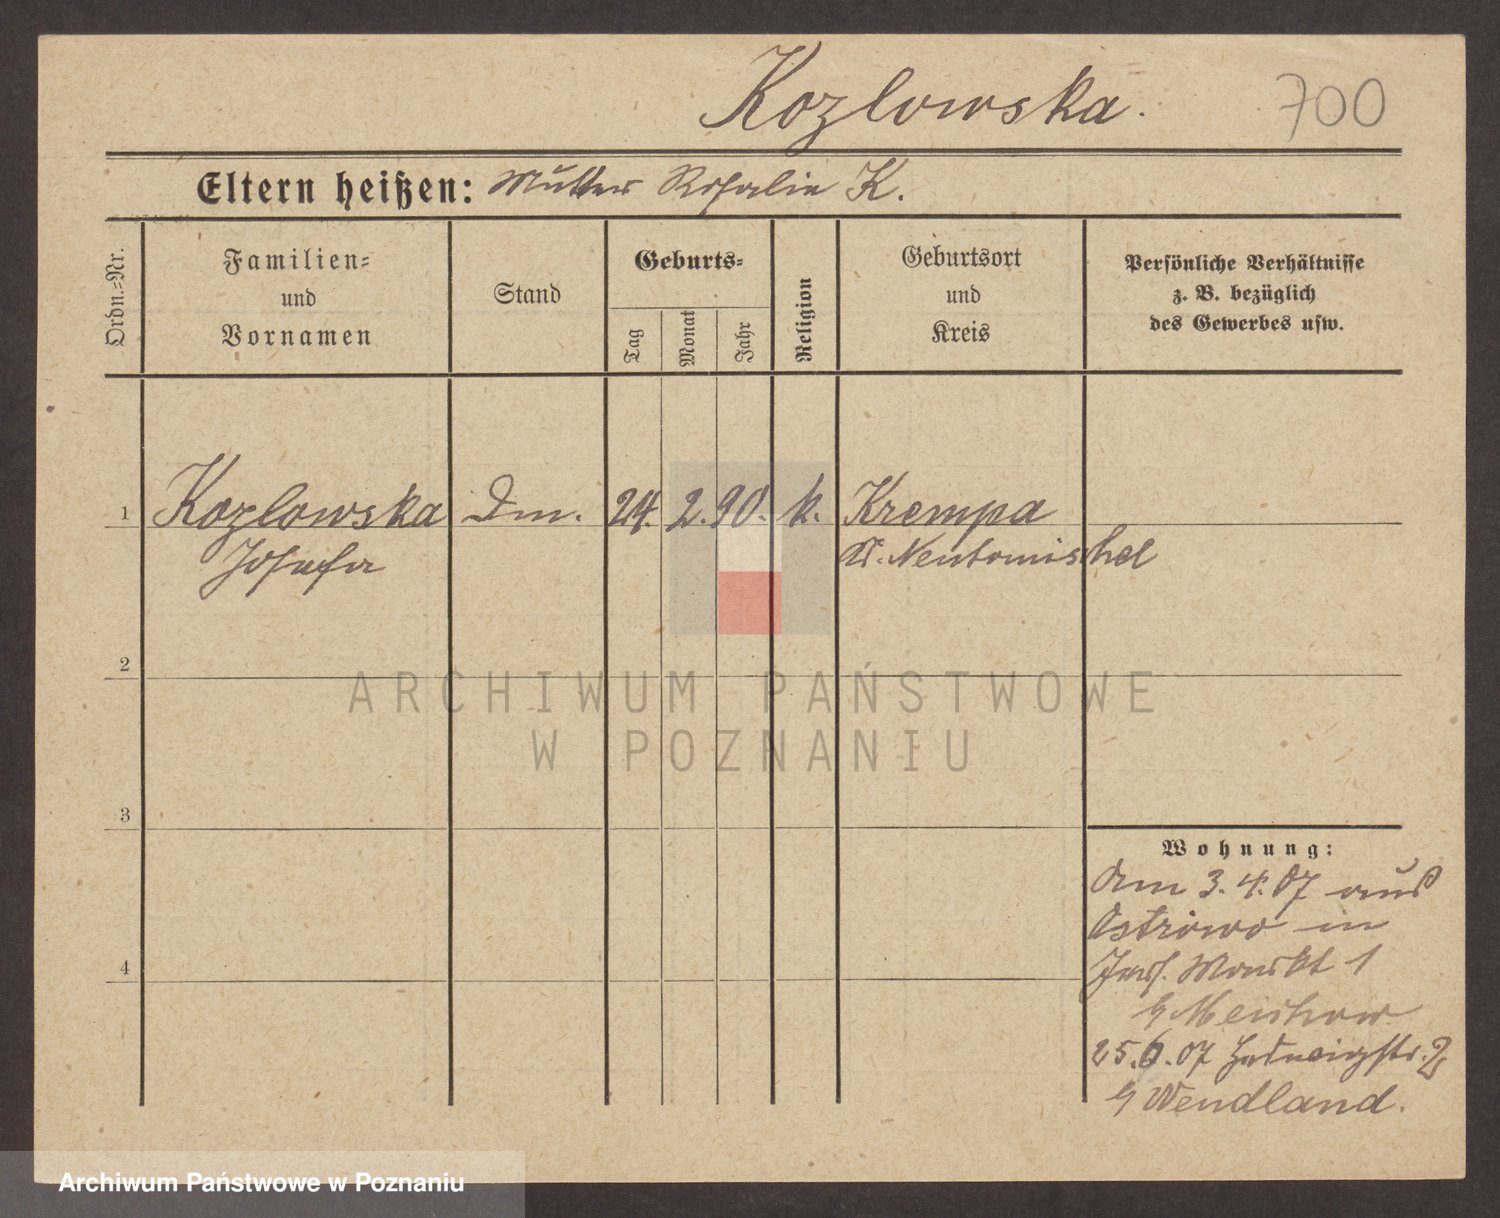 Kozlowska.
700
Eltern heißen: Mutter Rosalie K.
Ordn.-Nr.
Familien-
und
Vornamen
Stand
Geburts-
Tag
Monat
Jahr
Religion
Geburtsort
und
Kreis
Persönliche Verhältnisse
z. B. bezüglich
des Gewerbes usw.
1 Kozlowska Dm. 24. 2. 90. k. Krempa
Josefa Kr. Neutomischel
2
ARCHIWUM PAŃSTWOWE
W POZNANIU
3
Wohnung:
Am 3.4.07 aus
Ostrowo in
Markt 1
4
25.6.07 Hedwigstr. 2
Wendland.
Archiwum Państwowe w Poznaniu